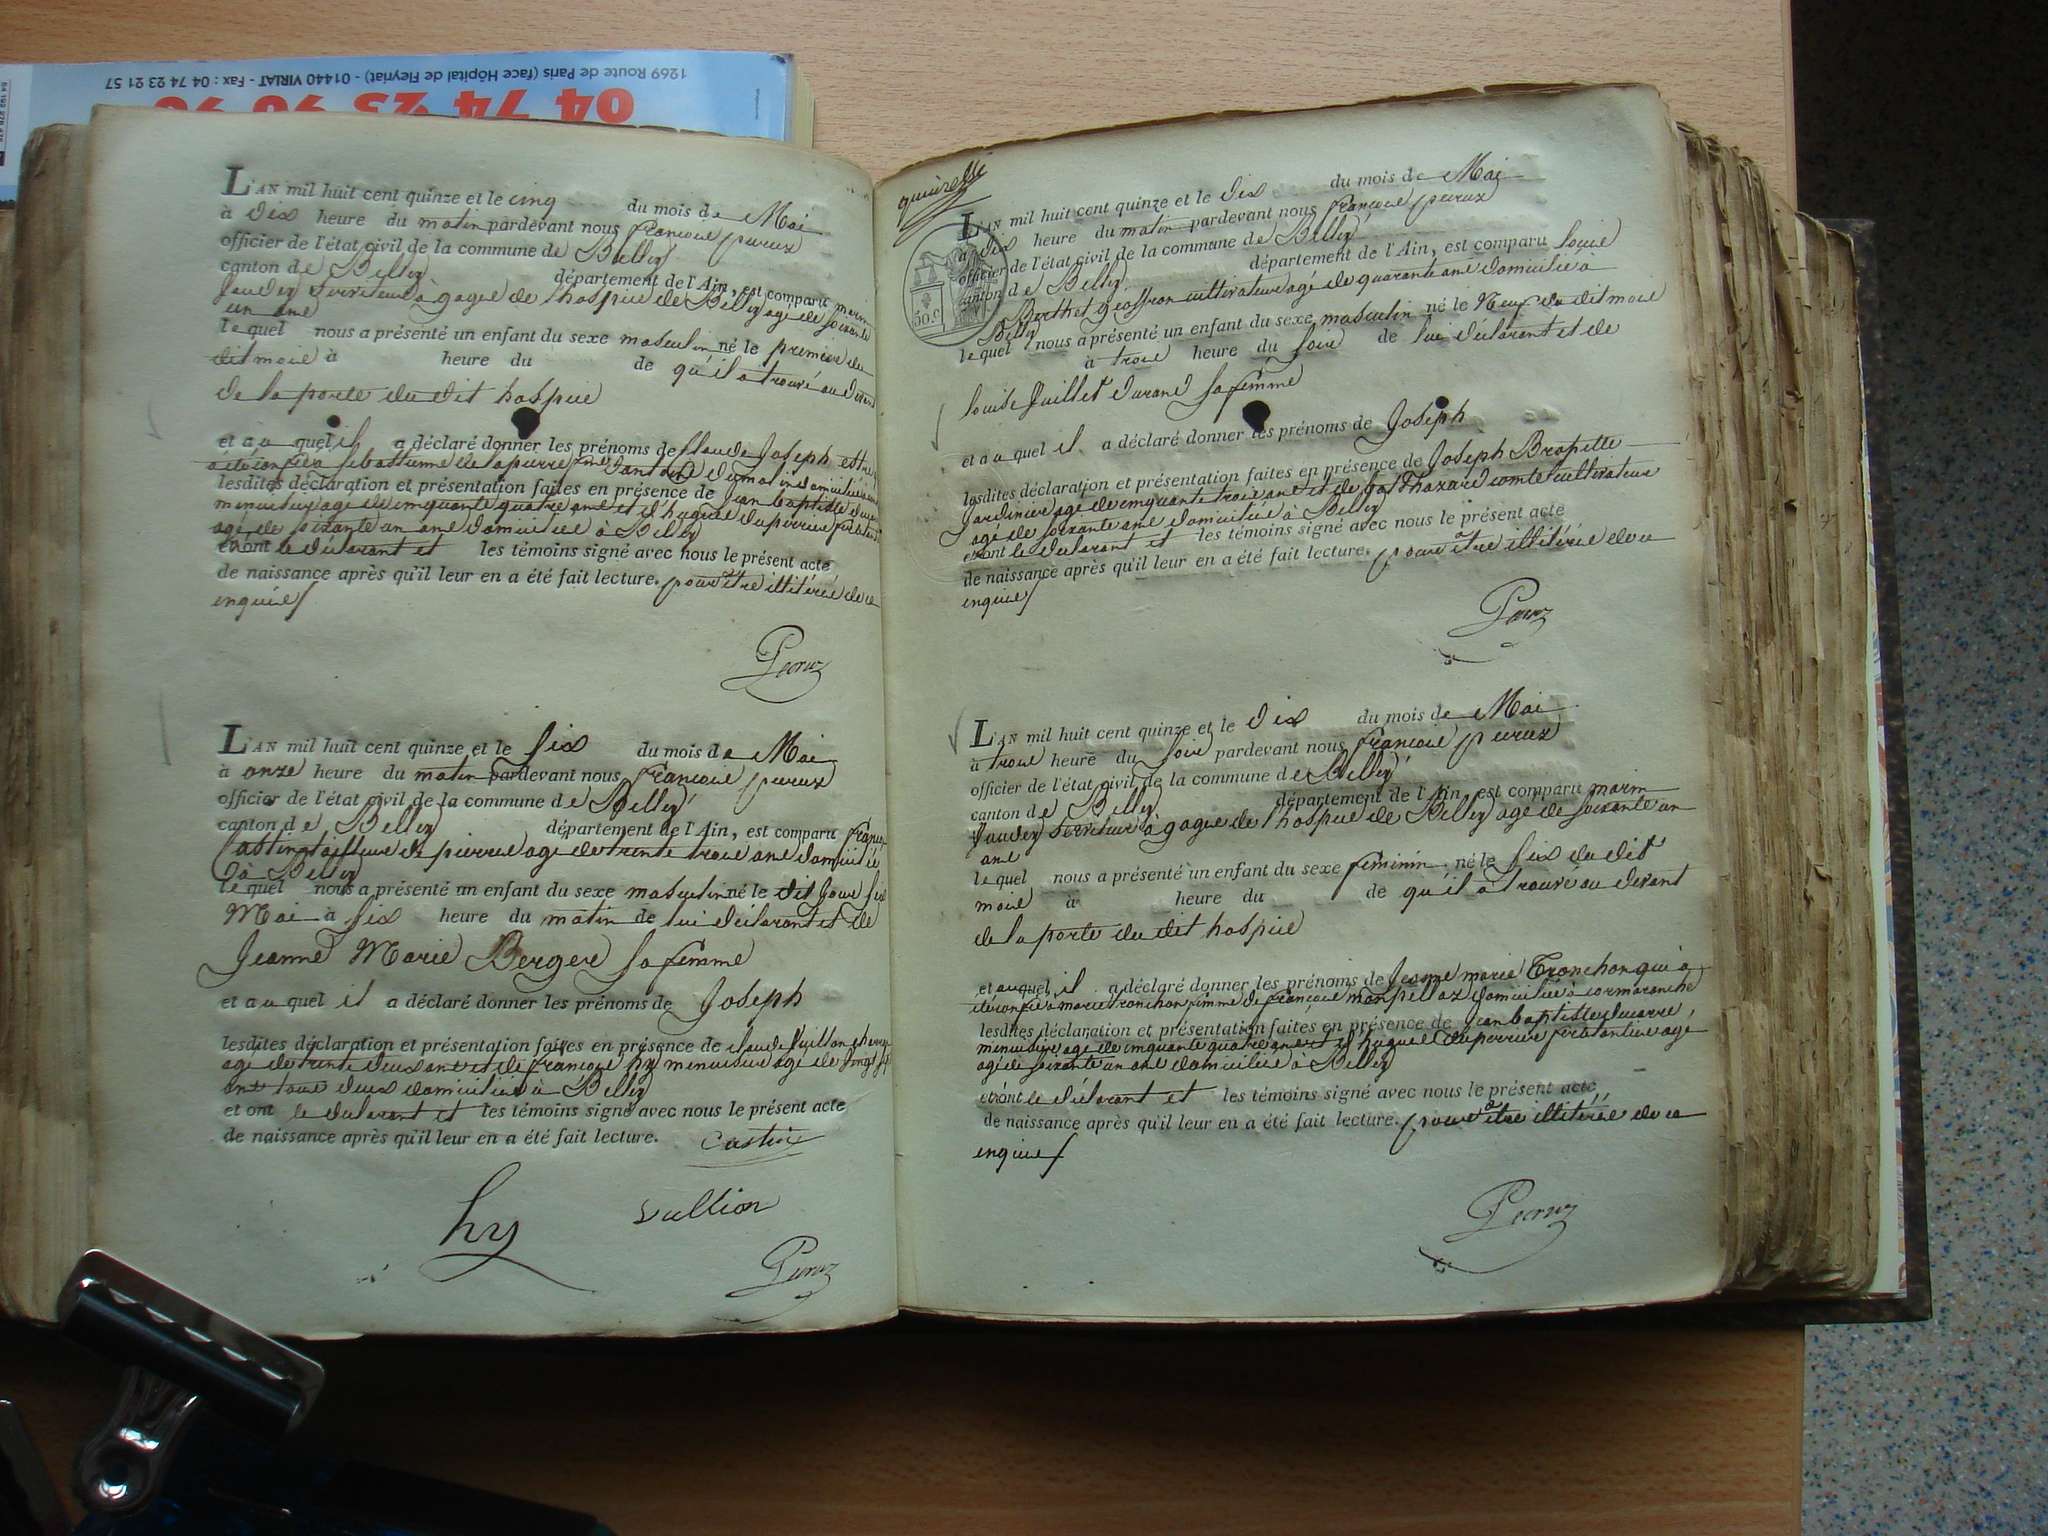 1269 Route de Paris (face Hôpital de Fleyriat) - 01440 VIRIAT - Fax : 04 74 23 21 57
04 74 23
L'AN mil huit cent quinze et le cinq du mois de Mai
à dix heure du matin pardevant nous françois peroux
officier de l'état civil de la commune de Belley
canton de Belley département de l'Ain, est comparu
serviteur à gages de l'hospice de Belley agé de soixante
un ans
lequel nous a présenté un enfant du sexe masculin né le premier du
dit mois à heure du de qu'il a trouvé au devant
de la porte du dit hospice
et auquel il a déclaré donner les prénoms de Claude Joseph
lesdites déclaration et présentation faites en présence de Jean baptiste
menuisier agé de cinquante quatre ans et d'hugues duperrier
agé de soixante un ans domiciliés à Belley
et ont le déclarant et les témoins signé avec nous le présent acte
de naissance après qu'il leur en a été fait lecture. pour être illitérés de ce
enquis
L'AN mil huit cent quinze et le six du mois de Mai
à onze heure du matin pardevant nous françois peroux
officier de l'état civil de la commune de Belley
canton de Belley département de l'Ain, est comparu françois
Castin tailleur de pierres agé de trente trois ans domicilié
à Belley
lequel nous a présenté un enfant du sexe masculin né le dit jour six
Mai à six heure du matin de lui déclarant et de
Jeanne Marie Berger sa femme
et auquel il a déclaré donner les prénoms de Joseph
lesdites déclaration et présentation faites en présence de claude Vuillion
agé de trente deux ans et de françois hy menuisier agé de
ans tous deux domiciliés à Belley
et ont le déclarant et les témoins signé avec nous le présent acte
de naissance après qu'il leur en a été fait lecture. Castin
hy Vullion
50.c
L'AN mil huit cent quinze et le dix du mois de Mai
à dix heure du matin pardevant nous françois peroux
officier de l'état civil de la commune de Belley
canton de Belley département de l'Ain, est comparu louis
Berthet cultivateur agé de quarante ans domicilié à
Belley
lequel nous a présenté un enfant du sexe masculin né le Neuf du dit mois
à trois heure du soir de lui déclarant et de
louise Juillet durand sa femme
et auquel il a déclaré donner les prénoms de Joseph
lesdites déclaration et présentation faites en présence de Joseph
Jardinier agé de cinquante trois ans et de balthazard comte cultivateur
agé de soixante ans domiciliés à Belley
et ont le déclarant et les témoins signé avec nous le présent acte
de naissance après qu'il leur en a été fait lecture. pour être illitérés de ce
enquis
L'AN mil huit cent quinze et le dix du mois de Mai
à trois heure du soir pardevant nous françois peroux
officier de l'état civil de la commune de Belley
canton de Belley département de l'Ain, est comparu
serviteur à gages de l'hospice de Belley agé de soixante un
ans
lequel nous a présenté un enfant du sexe feminin né le six du dit
mois à heure du de qu'il a trouvé au devant
de la porte du dit hospice
et auquel il a déclaré donner les prénoms de Jeanne marie Tronchon qui a
été confiée à marie tronchon femme de françois monpellaz domiciliée à cormaranche
lesdites déclaration et présentation faites en présence de Jean baptiste
menuisier agé de cinquante quatre ans et d'hugues duperrier
agé de soixante un ans domiciliés à Belley
et ont le déclarant et les témoins signé avec nous le présent acte
de naissance après qu'il leur en a été fait lecture. pour être illitérés de ce
enquis